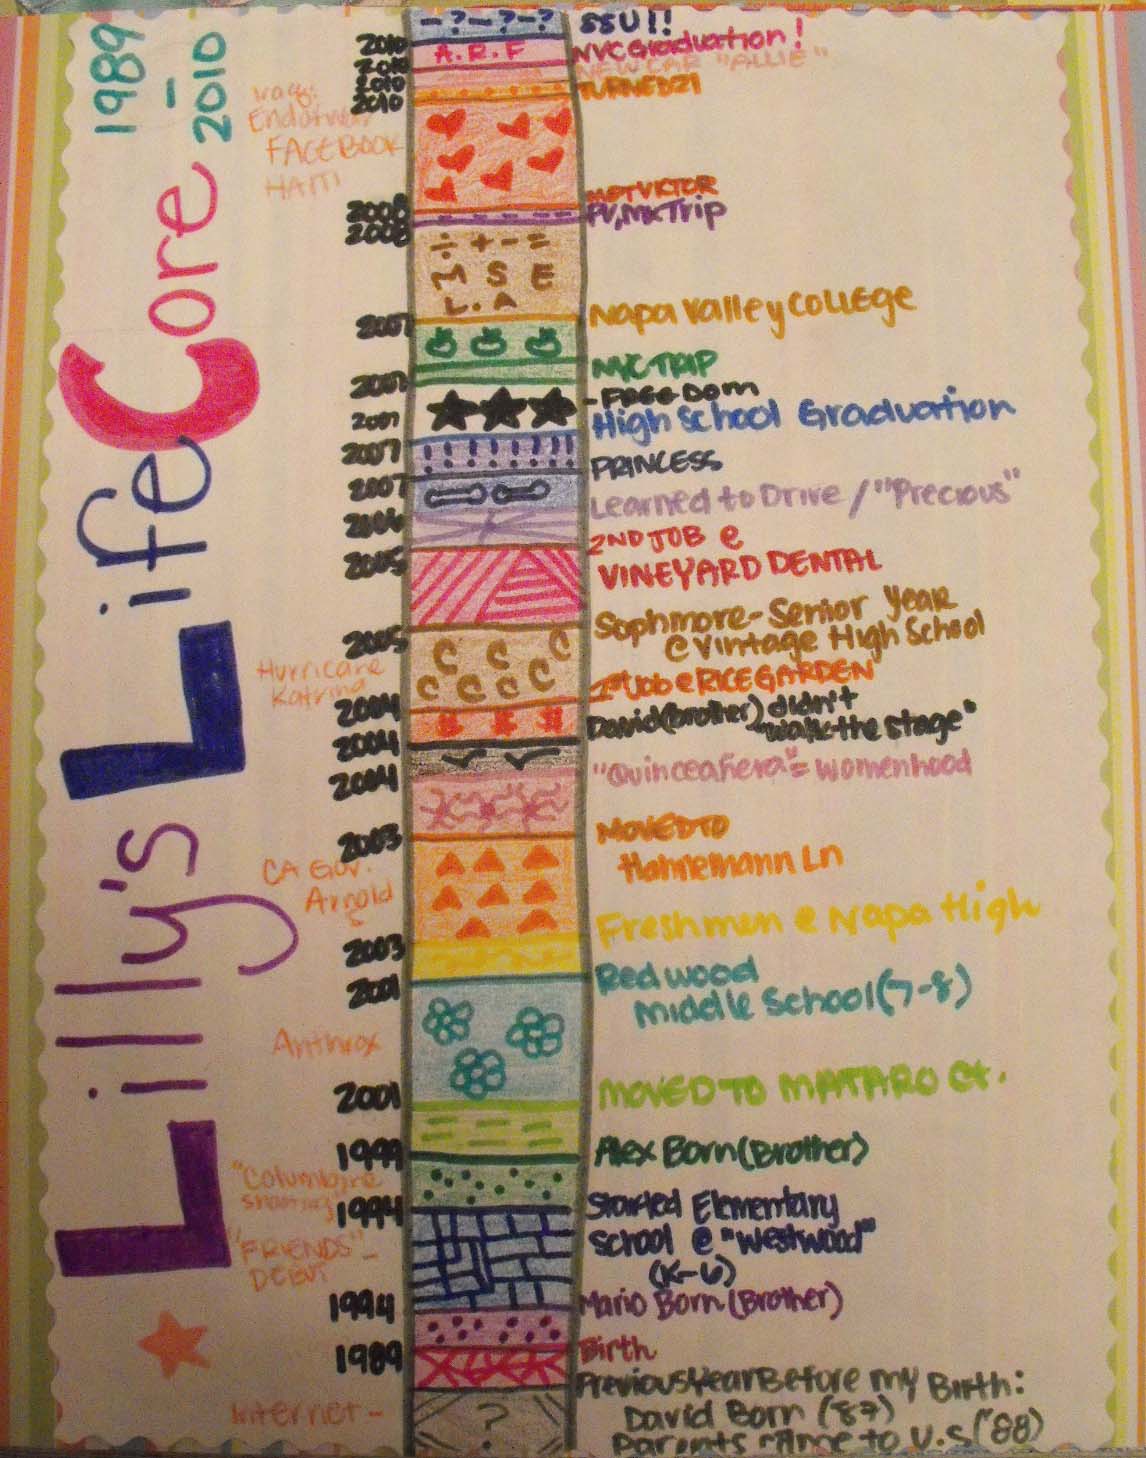 1989 - 2010
Lilly's Life Core
-?-?-? SSU!!
2010 A.R.F NVC Graduation!
2010 NEW CAR "ALLIE"
2010 TURNED 21
2010
Iraq:
Endof war
FACEBOOK
HAITI
MET VICTOR
2008 PV, Mx Trip
2008
÷ + - =
M S E
L. A
Napa Valley College
2007
NYC TRIP
2007 -FREEDOM
2007 High School Graduation
2007 PRINCESS
2007 Learned to Drive / "Precious"
2006
2ND JOB @
2005 VINEYARD DENTAL
Sophmore- Senior Year
2005 @ Vintage High School
C C C
C C C C
Hurricane
Katrina
1st Job @ RICE GARDEN
2004 $ $ $ David(brother) didn't
"walk the stage"
2004
"Quinceañera"= womenhood
2004
2003 MOVED TO
Hahnemann Ln
CA Gov.
Arnold
S
Freshmen @ Napa High
2003
Redwood
2001 Middle School (7-8)
Anthrax
2001 MOVED TO MATARO Ct.
1999 Alex Born (Brother)
"Columbine
shooting"
1994 Started Elementary
School @ "Westwood"
(K-6)
"FRIENDS"-
DEBUT
1994 Mario Born (Brother)
1989 Birth
Previous Year Before my Birth:
Internet - ? David Born ('87)
Parents Came to U.S ('88)